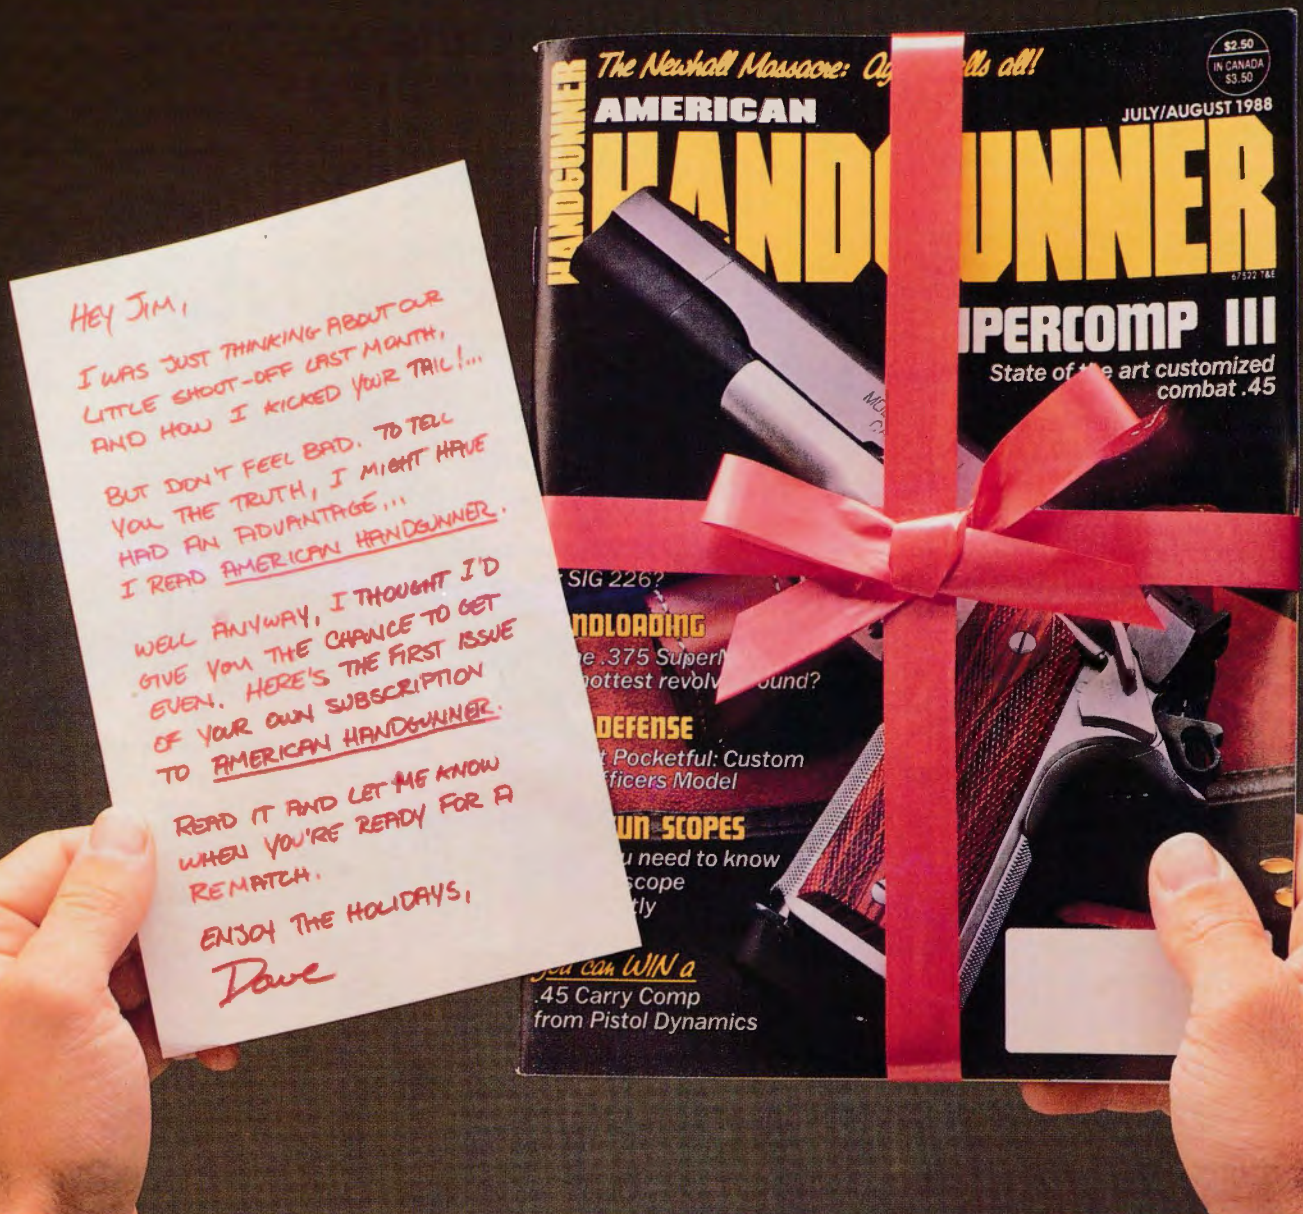 HEY JIM,
I WAS JUST THINKING ABOUT OUR
LITTLE SHOOT-OFF LAST MONTH,
AND HOW I KICKED YOUR TAIL!...
BUT DON'T FEEL BAD. TO TELL
YOU THE TRUTH, I MIGHT HAVE
HAD AN ADVANTAGE...
I READ AMERICAN HANDGUNNER.
WELL ANYWAY, I THOUGHT I'D
GIVE YOU THE CHANCE TO GET
EVEN. HERE'S THE FIRST ISSUE
OF YOUR OWN SUBSCRIPTION
TO AMERICAN HANDGUNNER.
READ IT AND LET ME KNOW
WHEN YOU'RE READY FOR A
REMATCH.
ENJOY THE HOLIDAYS,
Dave
HANDGUNNER
The Newhall Massacre: Ag lls all!
$2.50
IN CANADA
$3.50
AMERICAN
JULY/AUGUST 1988
HANDGUNNER
67522 T&E
UPERCOMP III
State of the art customized
combat .45
SIG 226?
NDLOADING
e .375 Super
hottest revolv ound?
DEFENSE
t Pocketful: Custom
fficers Model
UN SCOPES
u need to know
scope
tly
you can WIN a
.45 Carry Comp
from Pistol Dynamics